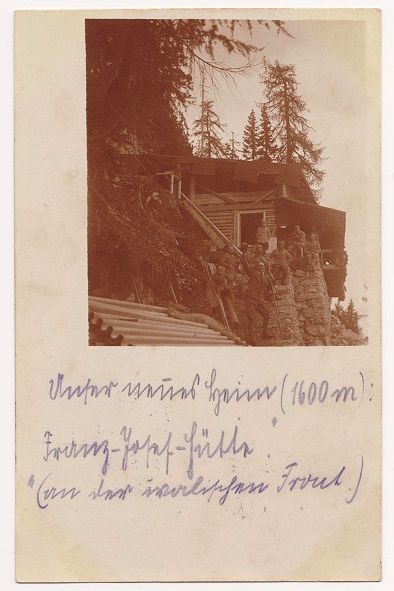 Unser neues Heim (1600 m):
Franz-Josef-Hütte."
"(an der walischen Front.)